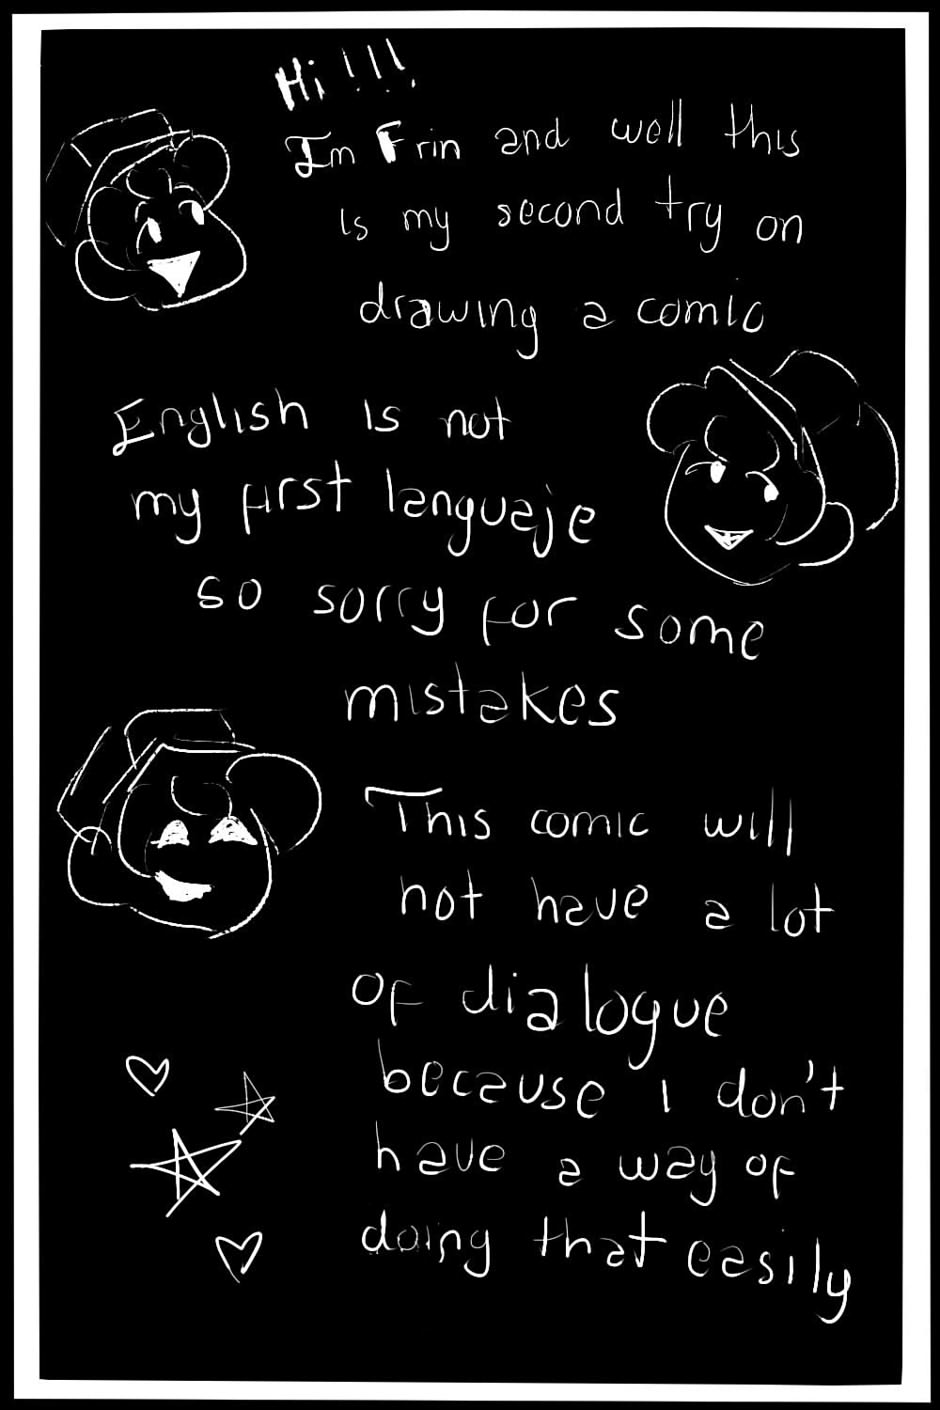 Hi!!!
Im Frin and well this
is my second try on
drawing a comic
English is not
my first languaje
so sorry for some
mistakes
This comic will
not have a lot
of dialogue
because i don't
have a way of
doing that easily